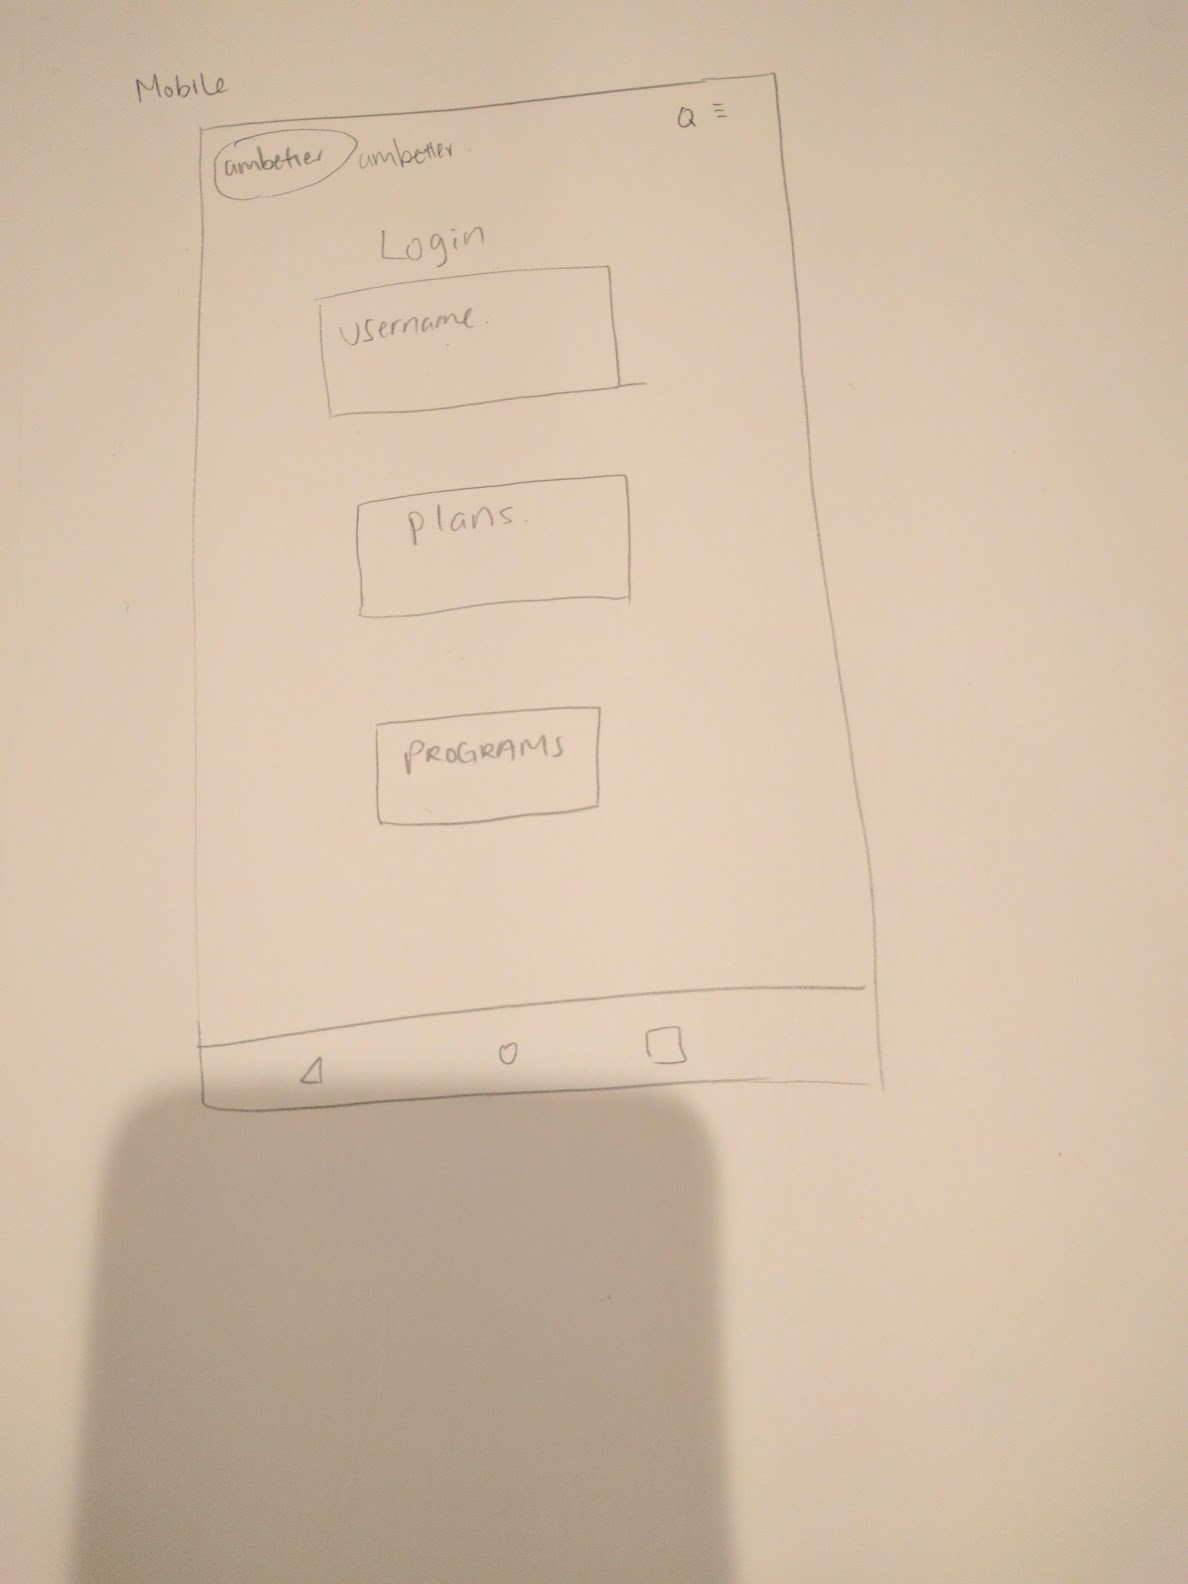 Mobile
ambetter ambetter
Login
Username.
plans.
PROGRAMS